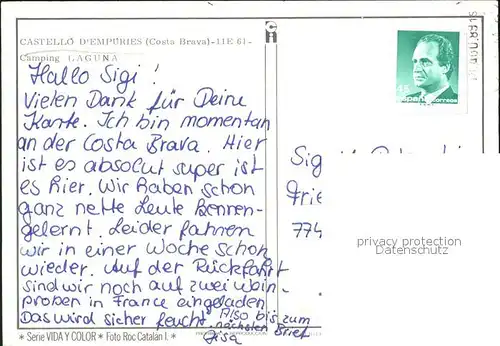 CASTELLÓ D'EMPÚRIES (Costa Brava)-11E·61-
Camping LAGUNA
Hallo Sigi!
Vielen Dank für Deine
Karte. Ich bin momentan
an der Costa Brava. Hier
ist es absolut super ist
es hier. Wir haben schon
ganz nette Leute kennen-
gelernt. Leider fahren
wir in einer Woche schon
wieder. Auf der Rückfahrt
sind wir noch auf zwei Wein-
proben in France eingeladen
Das wird sicher feucht. Also bis zum
nächsten Brief
Gisa
* Serie VIDA Y COLOR * Foto Roc Catalan I. *
45
españa correos
Sig
Frie
774
privacy protection
Datenschutz